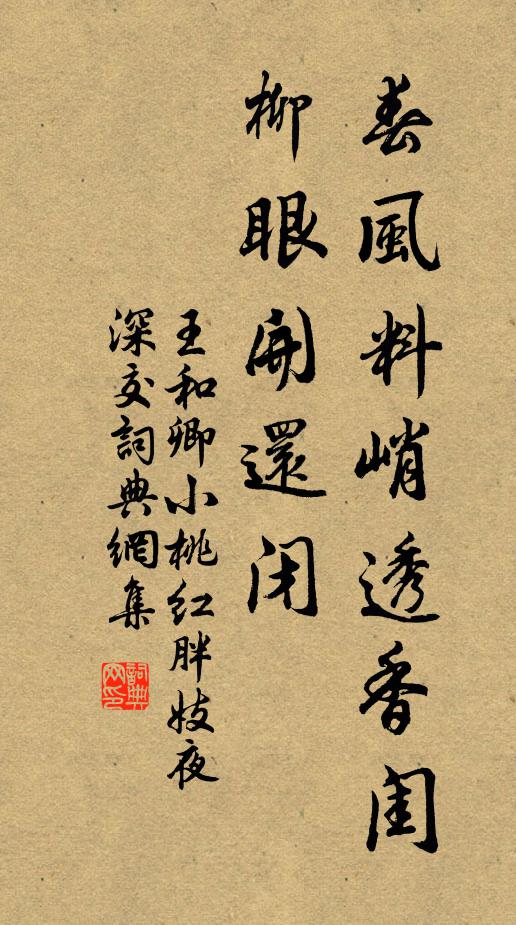 春風料峭透香闺
柳眼開還闭
王和卿小桃红胖妓夜
深交詞典網集
詞典
网印